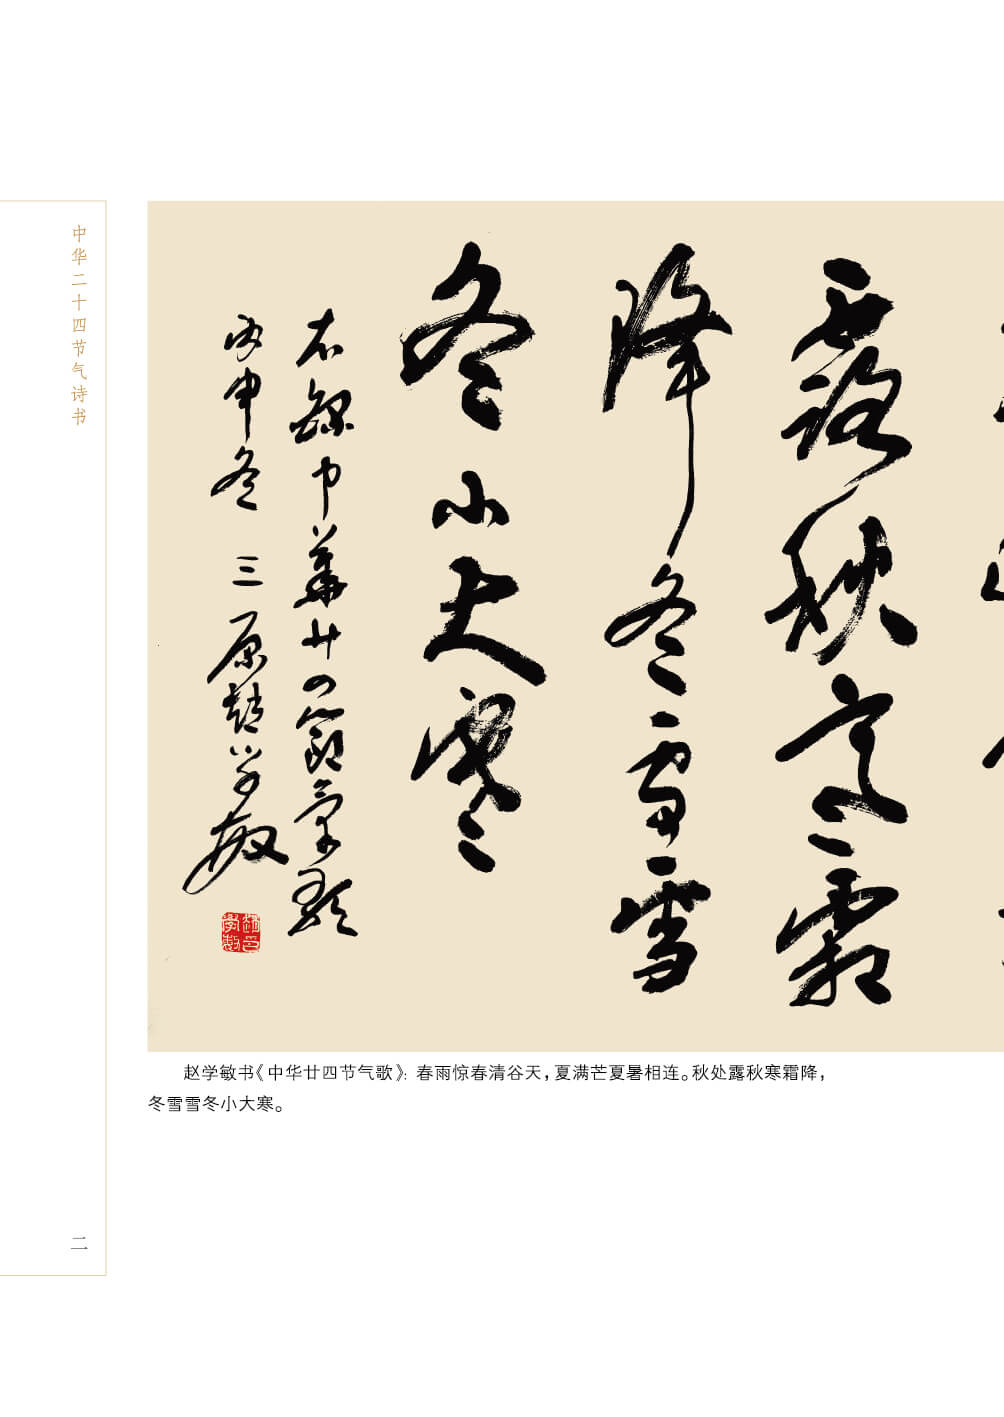 中华二十四节气诗书
露秋寒霜
降冬雪雪
冬小大寒
右录中华廿四节气歌
丙申冬 三原赵学敏
赵学敏书《中华廿四节气歌》：春雨惊春清谷天，夏满芒夏暑相连。秋处露秋寒霜降，
冬雪雪冬小大寒。
二